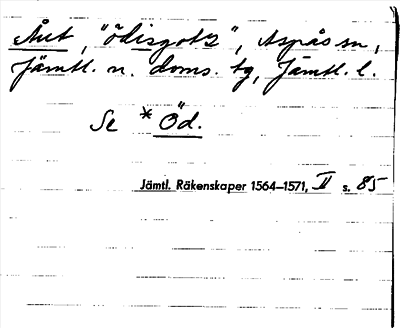 Aut, "Ödisgotz", Aspås sn,
Jämtl. n. doms. tg, Jämtl. l.
Se *Öd.
Jämtl. Räkenskaper 1564–1571, II s. 85